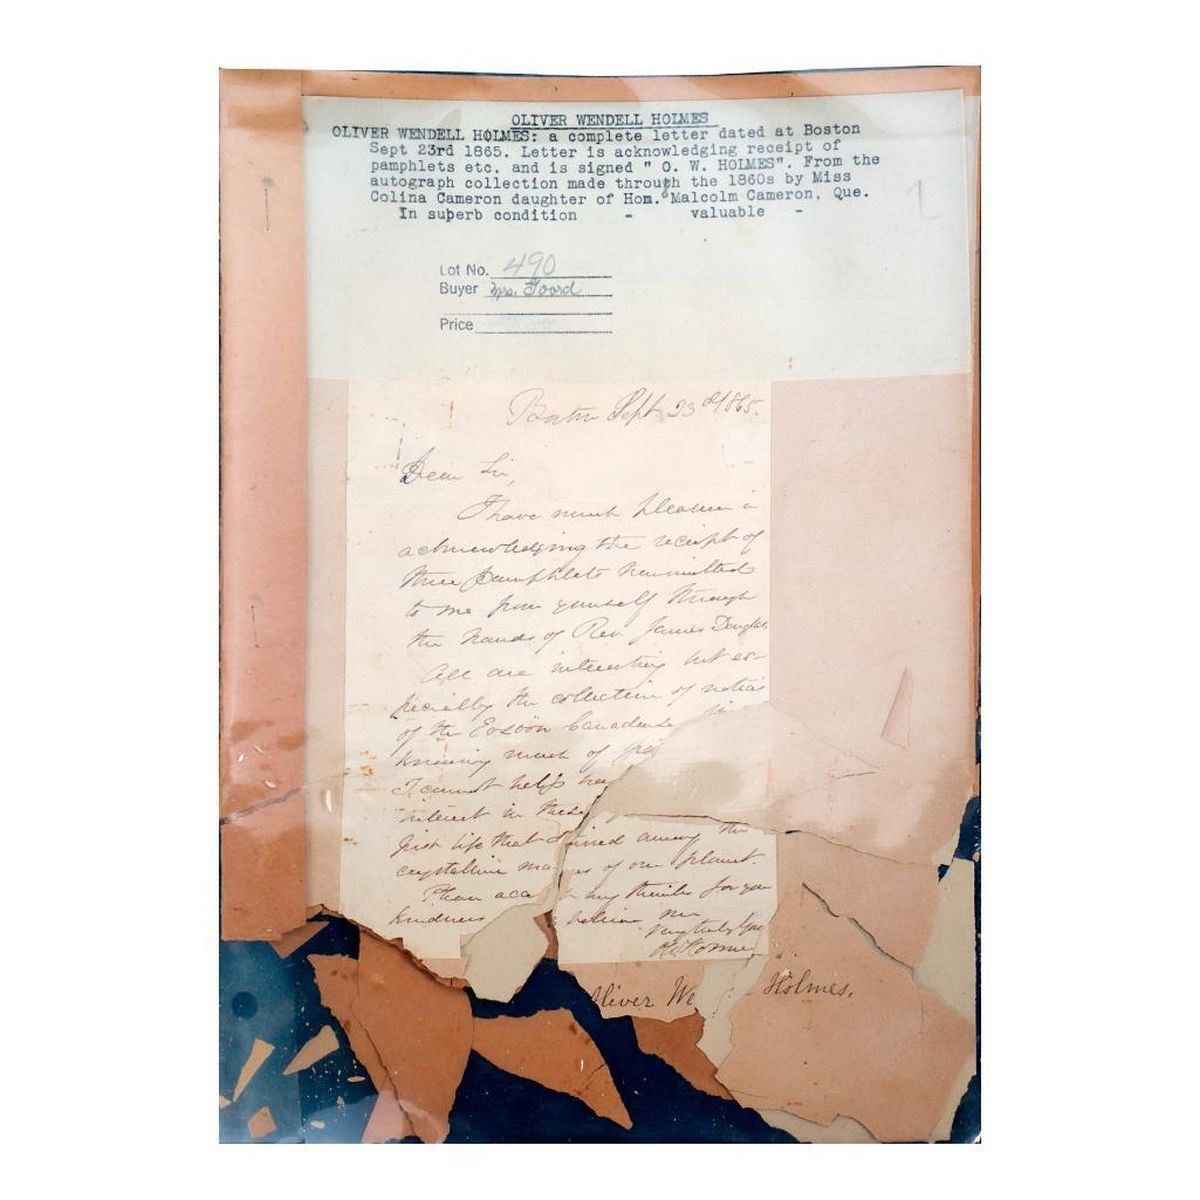 OLIVER WENDELL HOLMES
OLIVER WENDELL HOLMES: a complete letter dated at Boston
Sept 23rd 1865. Letter is acknowledging receipt of
pamphlets etc. and is signed " O. W. HOLMES". From the
autograph collection made through the 1860s by Miss
Colina Cameron daughter of Hom. Malcolm Cameron, Que.
In superb condition - valuable -
Lot No. 490
Buyer Mrs. Foord
Price
Boston Sept. 23d 1865.
Dear Sir,
I have much pleasure in
acknowledging the receipt of
three pamphlets transmitted
to me from yourself through
the hands of Rev. James Douglas
All are interesting but es-
pecially the collection of notices
of the Eozoön Canadense
knowing much of
I cannot help
interest in these
first life that stirred among the
crystalline masses of our planet.
Please accept my thanks for your
kindness believe me
Very truly yours
O W Holmes
Oliver We Holmes.